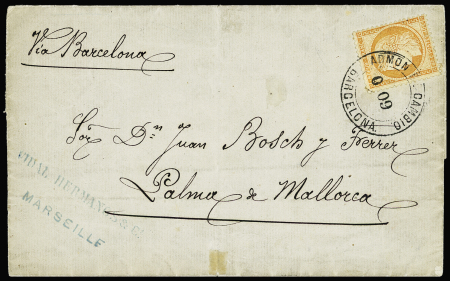 Via Barcelona
ADMON CAMBIO
BARCELONA
Sor. Dn Juan Bosch y Ferrer
Palma de Mallorca
MARSEILLE